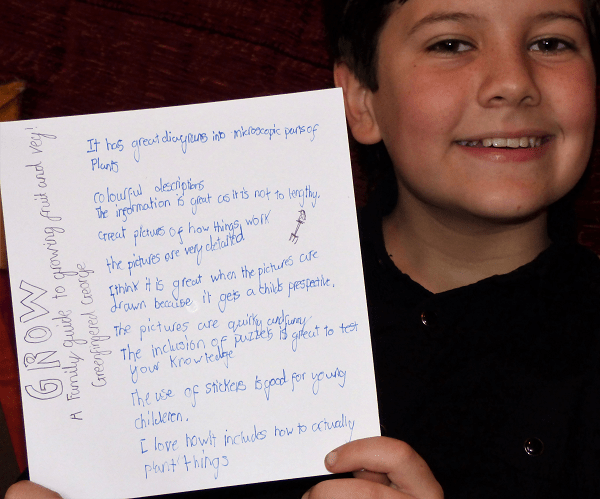 GROW
A Family guide to growing fruit and veg!
Greenfingered George
It has great diaygrams into microscopic parts of
Plants
colourful descriptions
The information is great as it is not to lengthy.
Great pictures of how things work
the pictures are very detailed
I think it is great when the pictures are
drawn because it gets a childs prespective.
The pictures are quirky and funny.
The inclusion of puzzels is great to test
your knowledge
The use of stickers is good for young
childeren.
I love how It includes how to actually
plant things